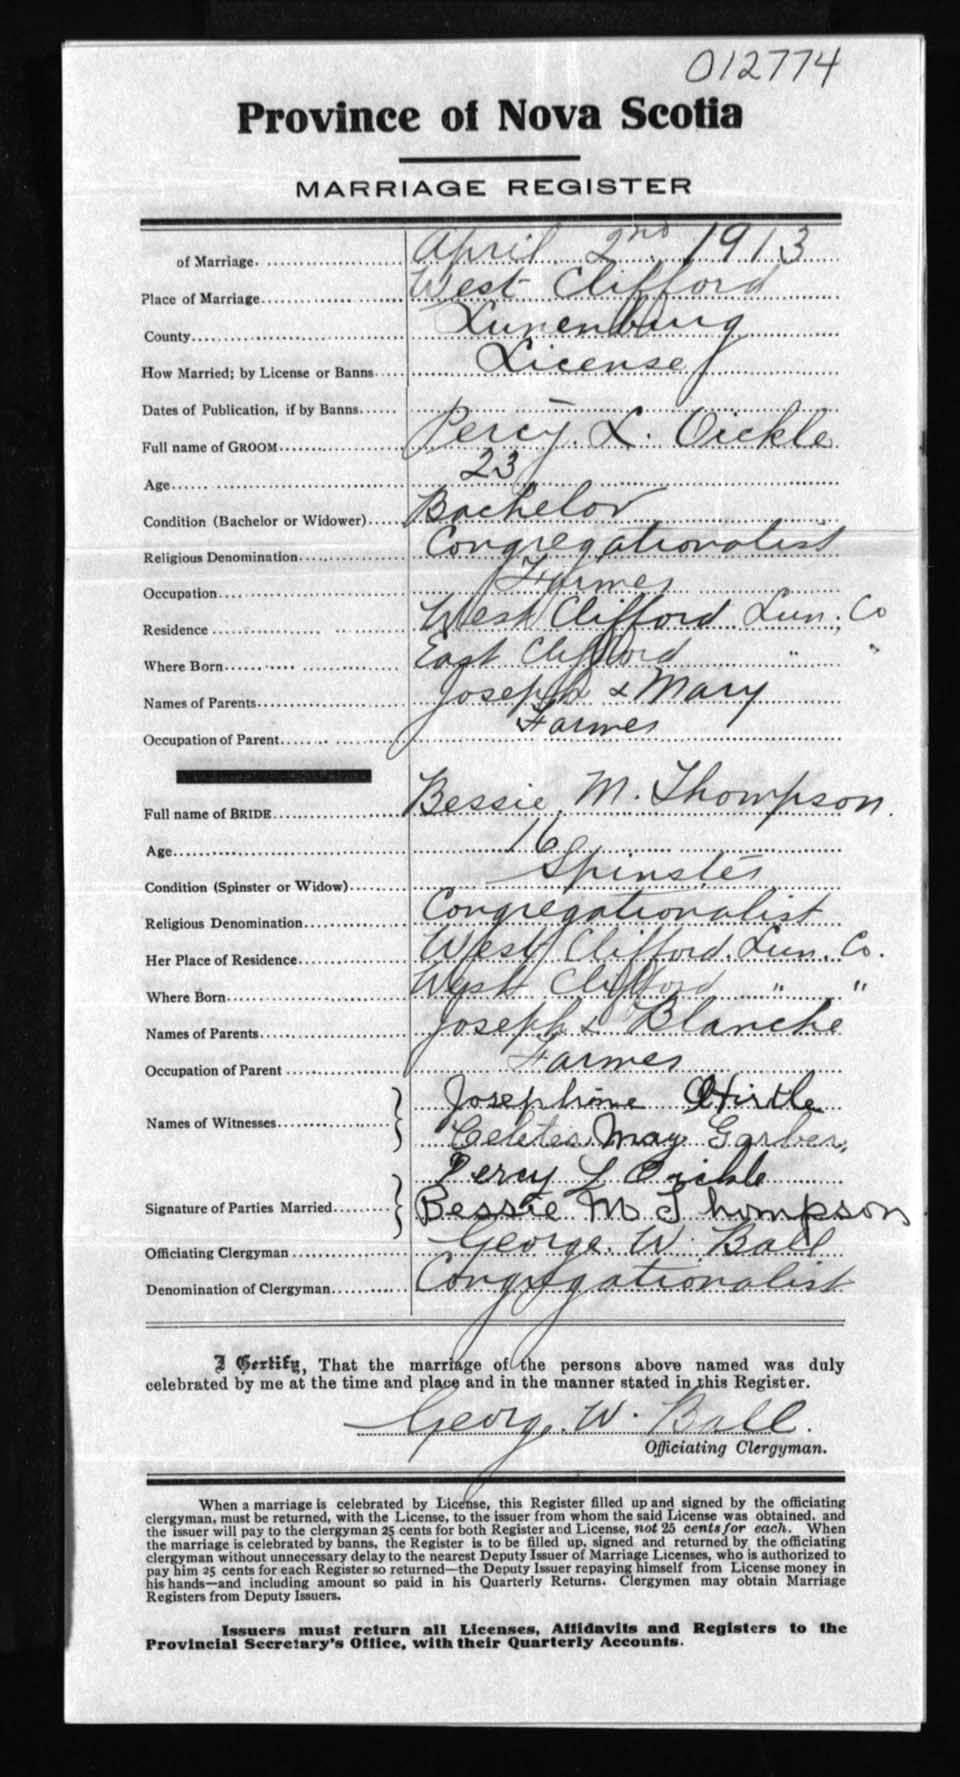 012774
Province of Nova Scotia
MARRIAGE REGISTER
of Marriage. April 2nd 1913
Place of Marriage West Clifford
County Lunenburg
How Married; by License or Banns License
Dates of Publication, if by Banns
Full name of GROOM Percy. L. Oickle
Age 23
Condition (Bachelor or Widower) Bachelor
Religious Denomination Congregationalist
Occupation Farmer
Residence West Clifford Lun. Co
Where Born East Clifford " "
Names of Parents Joseph & Mary
Occupation of Parent Farmer
Full name of BRIDE Bessie M. Thompson.
Age 16
Condition (Spinster or Widow) Spinster
Religious Denomination Congregationalist
Her Place of Residence West Clifford. Lun. Co.
Where Born West Clifford " "
Names of Parents Joseph & Blanche
Occupation of Parent Farmer
Josephine Hirtle
Names of Witnesses
May Garber,
Percy L Oickle
Signature of Parties Married Bessie M Thompson
Officiating Clergyman George. W. Ball
Denomination of Clergyman Congregationalist
I Certify, That the marriage of the persons above named was duly
celebrated by me at the time and place and in the manner stated in this Register.
Georg. W. Ball.
Officiating Clergyman.
When a marriage is celebrated by License, this Register filled up and signed by the officiating
clergyman, must be returned, with the License, to the issuer from whom the said License was obtained. and
the issuer will pay to the clergyman 25 cents for both Register and License, not 25 cents for each. When
the marriage is celebrated by banns, the Register is to be filled up, signed and returned by the officiating
clergyman without unnecessary delay to the nearest Deputy Issuer of Marriage Licenses, who is authorized to
pay him 25 cents for each Register so returned—the Deputy Issuer repaying himself from License money in
his hands—and including amount so paid in his Quarterly Returns. Clergymen may obtain Marriage
Registers from Deputy Issuers.
Issuers must return all Licenses, Affidavits and Registers to the
Provincial Secretary's Office, with their Quarterly Accounts.